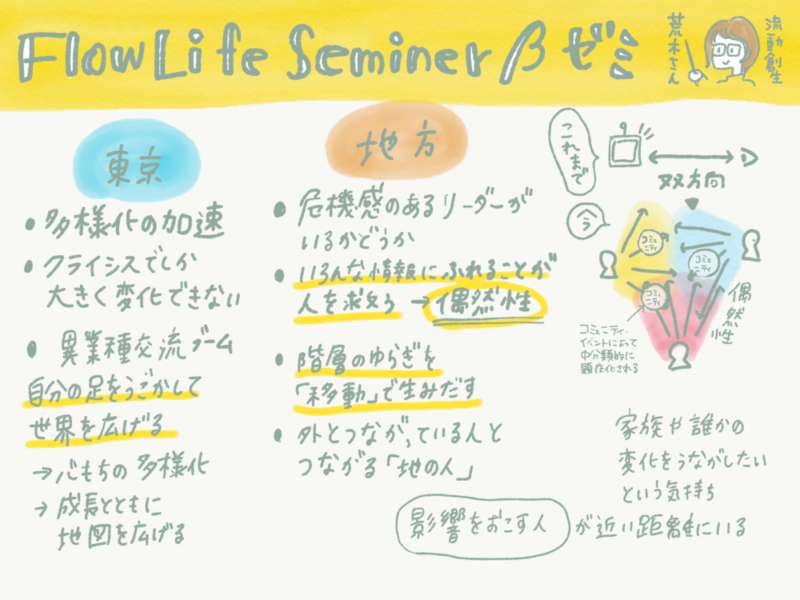 FlowLife Seminer βゼミ
流動創生
荒木さん
東京
• 多様化の加速
• クライシスでしか
大きく変化できない
• 異業種交流ブーム
自分の足をうごかして
世界を広げる
→心もちの多様化
→成長とともに
地図を広げる
地方
• 危機感のあるリーダーが
いるかどうか
• いろんな情報にふれることが
人を救う → 偶然性
• 階層のゆらぎを
「移動」で生みだす
• 外とつながっている人と
つながる「地の人」
これまで
双方向
今
コミュニティ
コミュニティ
コミュニティ
偶然性
コミュニティ・
イベントによって
中分類的に
顕在化される
家族や誰かの
変化をうながしたい
という気持ち
影響をおこす人 が近い距離にいる